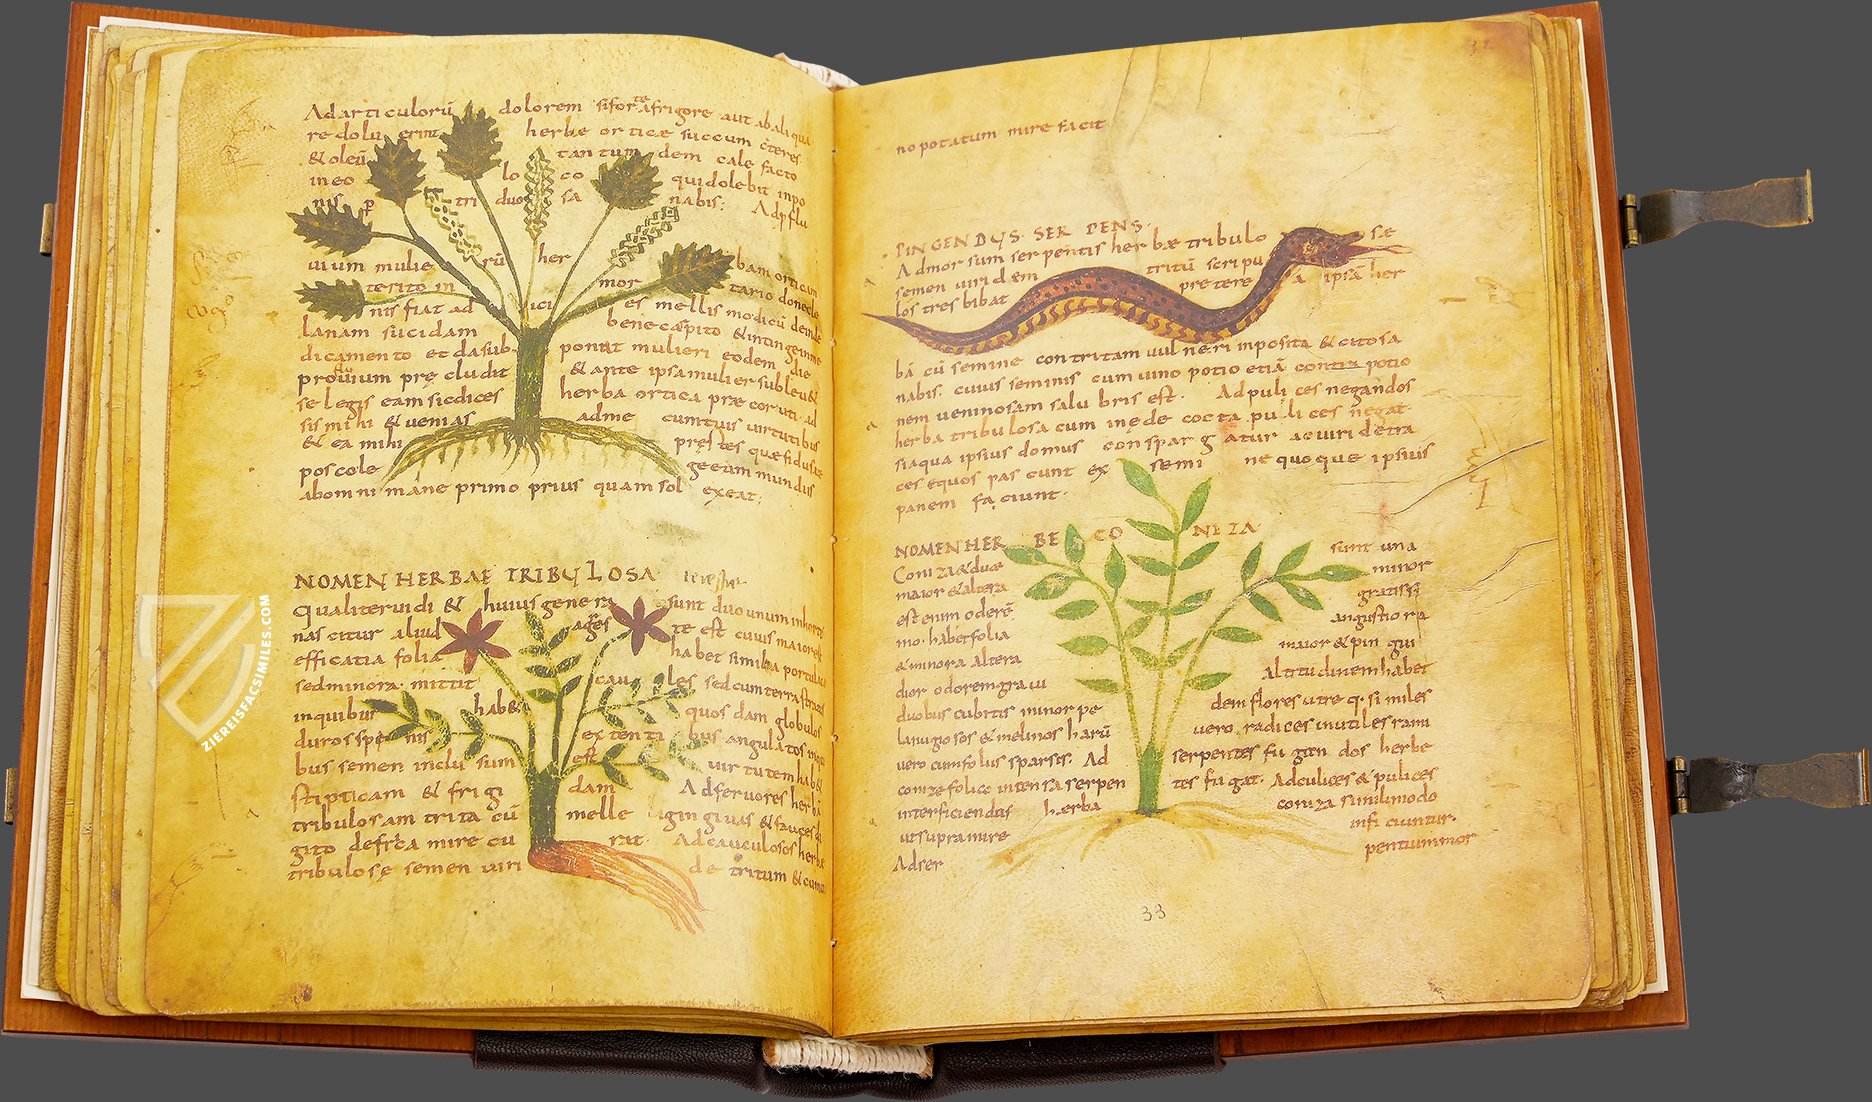 Adarticulorū dolorem siforte afrigore aut abaliqua
re dolu erint herbae orticæ succum cteres
& oleū tantum dem cale facto
ineo lo co quidolebit inpo
nis p tri duo sa nabis: Adpflu
uium mulie rū her bam orticam
terito in ici mor tario donec le
nis fiat ad es mellis modicū deinde
lanam sucidam bene cæpito & intingeinme
dicamento et dasub ponat mulieri eodem die
profluuium pre cludit & ante ipsa mulier subleu&
se legis eam sic dices herba ortica præcoruti ad
sis mihi & uenias adme cumtuis uirtutibus
& ea mihi prestes que fiduste
poscole geeam mundus
abomni mane primo prius quam sol exeat;
NOMEN HERBAE TRIBULOSA
Qualiteruidi & huius genera sunt duo unum inhortis
nas citur aliud ages te est cuius maiorest
efficatia folia habet similia portulace
sedminora. mittit cau les sed cum terra stratos
inquibus hab& quos dam globulos
duros spe nis extenti bus angulatos inqui
bus semen inclu sum est uir tutem hab&
stipticam & frigi dam Adferuores herbā
tribulosam trita cū melle ligingiuas & fauces
gito defrīca mire cu rat. Adcauculosos herbæ
tribulosę semen uiri de tritum & cum
no potatum mire facit
PINGENDUS SERPENS.
Admorsum serpentis herbæ tribulo sæ
semen uiridem tritū scripu
los tres bibat preterea ipsā her
bā cū semine contritam uulneri inposita & cito sa
nabis. cuius seminis cum uino potio etiā contra potio
nem ueninosam salu bris est. Adpuli ces negandos
herba tribulosa cum inede cocta pulices negat
siaqua ipsius domus conspargatur acuiridetra
ces equos pas cunt ex semi ne quoque ipsius
panem faciunt.
NOMEN HERBE CONEZA
Coniza & duæ sunt una
maior & altera minor
est enim oderē gratissi
mo. habet folia angustiora
& minora altera maior & pin gui
dior odorem graui Altitudinem habet
duobus cubitis minor pe dem flores utreq. similes
lanugiosos & melinos harū uero radices inutiles rami
uero cumfolius sparsis. Ad serpentes fu gan dos herbe
conize folio intensa serpen tes fugat. Adculices & pulices
interficiendas herba coniza similimodo
utsupra mire infi ciuntur.
Adser pentium mor
33
ZIEREISFACSIMILES.COM